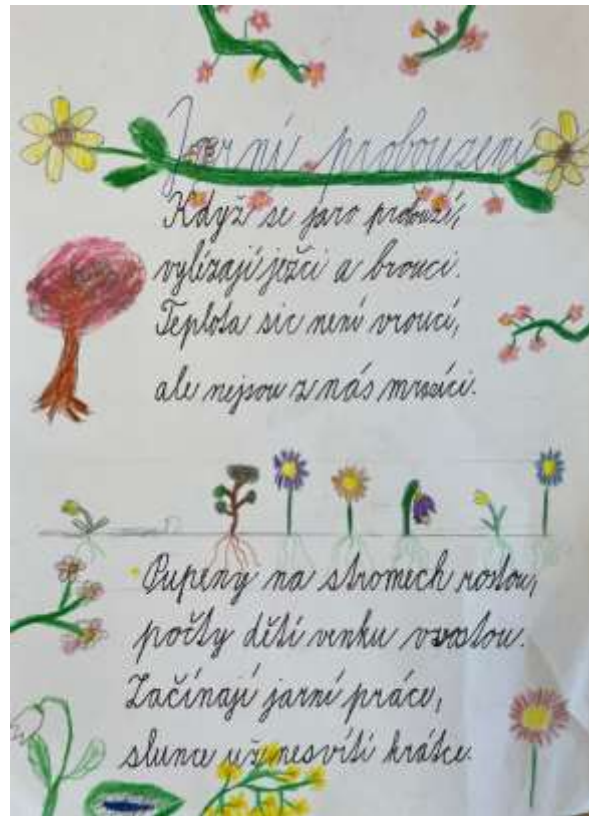 Jarní probouzení
Když se jaro probouzí,
vylézají ježci a brouci.
Teplota sic není vroucí,
ale nejsou z nás mrzáci.
Pupeny na stromech rostou,
počty dětí venku vzrostou.
Začínají jarní práce,
slunce už nesvítí krátce.